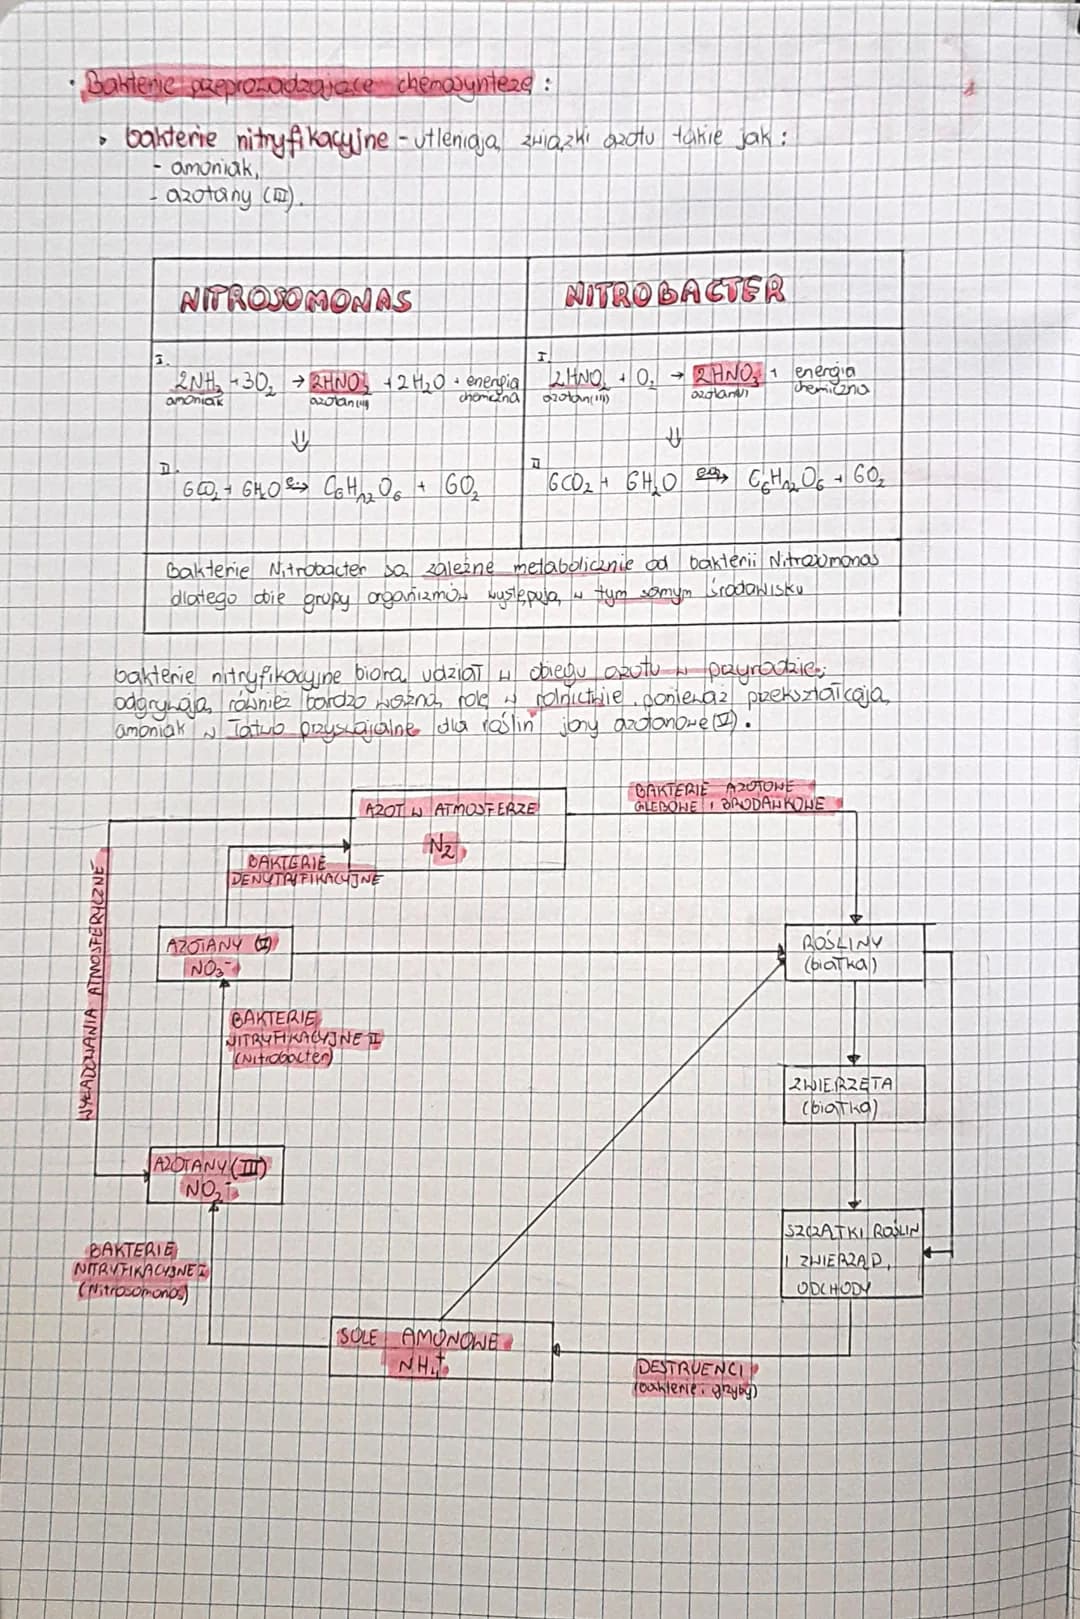 • Bakterie przeprowadzające chemosyntezę :
› bakterie nitryfikacyjne - utleniają związki azotu takie jak :
- amoniak,
- azotany (III).
NITROSOMONAS
NITROBACTER
I.
2NH₃ + 3O₂ → 2HNO₂ + 2H₂O + energia
amoniak azotan(III) chemiczna
⇓
II.
6CO₂ + 6H₂O → C₆H₁₂O₆ + 6O₂
I.
2HNO₂ + O₂ → 2HNO₃ + energia
azotan(III) azotan(V) chemiczna
⇓
II
6CO₂ + 6H₂O → C₆H₁₂O₆ + 6O₂
Bakterie Nitrobacter są zależne metabolicznie od bakterii Nitrosomonas
dlatego obie grupy organizmów występują w tym samym środowisku
bakterie nitryfikacyjne biorą udział w obiegu azotu w przyrodzie;
odgrywają również bardzo ważną rolę w rolnictwie ponieważ przekształcają
amoniak w łatwo przyswajalne dla roślin jony azotanowe (V).
AZOT W ATMOSFERZE
N₂
BAKTERIE AZOTOWE
GLEBOWE I BRODAWKOWE
BAKTERIE
DENYTRYFIKACYJNE
WYŁADOWANIA ATMOSFERYCZNE
AZOTANY (V)
NO₃⁻
ROŚLINY
(białka)
BAKTERIE
NITRYFIKACYJNE II
(Nitrobacter)
ZWIERZĘTA
(białka)
AZOTANY (III)
NO₂⁻
SZCZĄTKI ROŚLIN
I ZWIERZĄD,
ODCHODY
BAKTERIE
NITRYFIKACYJNE I
(Nitrosomonas)
SOLE AMONOWE
NH₄⁺
DESTRUENCI
(bakterie i grzyby)